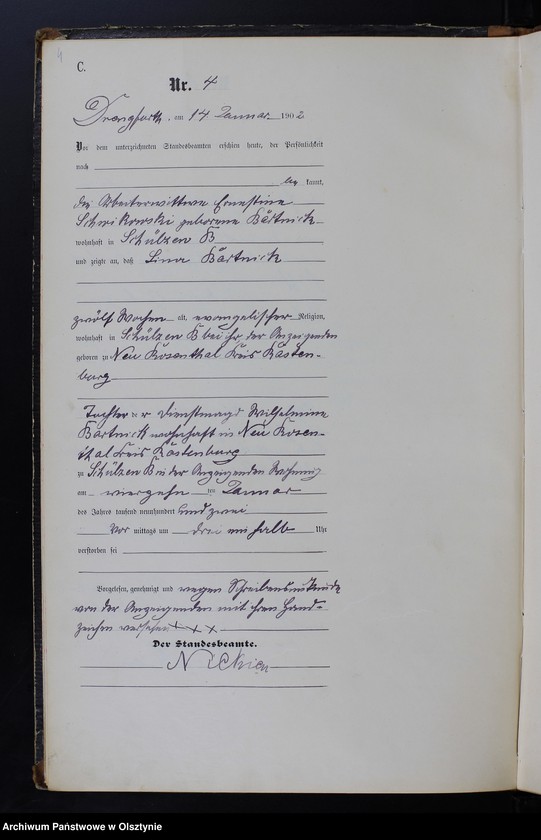 4
C.
Nr. 4
Drengfurth, am 14 Januar 1902
Vor dem unterzeichneten Standesbeamten erschien heute, der Persönlichkeit
nach
be kannt,
die Arbeiterwittwe Ernestine
Schwikowski geborene Bärtnick
wohnhaft in Schülzen B
und zeigte an, daß Lina Bärtnick
zwölf Wochen alt, evangelischer Religion,
wohnhaft in Schülzen B bei ihr der Anzeigenden
geboren zu Neu Rosenthal Kreis Rasten-
burg
Tochter der Dienstmagd Wilhelmine
Bärtnick wohnhaft in Neu Rosen-
thal Kreis Rastenburg
zu Schülzen B in der Anzeigenden Wohnung
am vierzehn ten Januar
des Jahres tausend neunhundert und zwei
Vor mittags um drei ein halb Uhr
verstorben sei
Vorgelesen, genehmigt und wegen Schreibensunkunde
von der Anzeigenden mit ihren Hand-
zeichen versehen + + +
Der Standesbeamte.
Archiwum Państwowe w Olsztynie